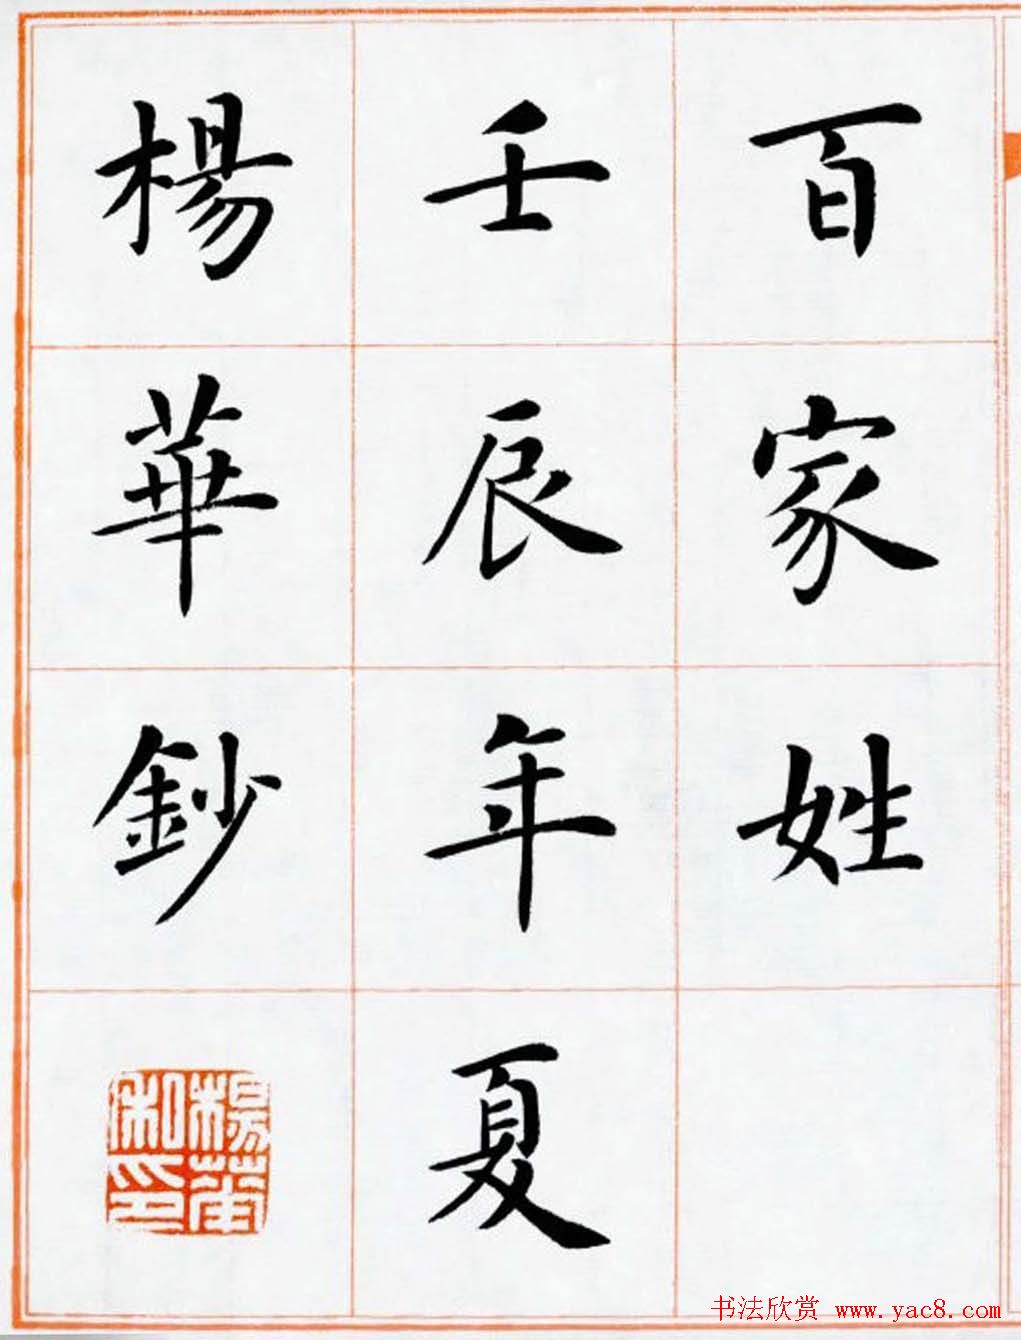 百家姓
壬辰年夏
楊華鈔
楊華私印
书法欣赏 www.yac8.com